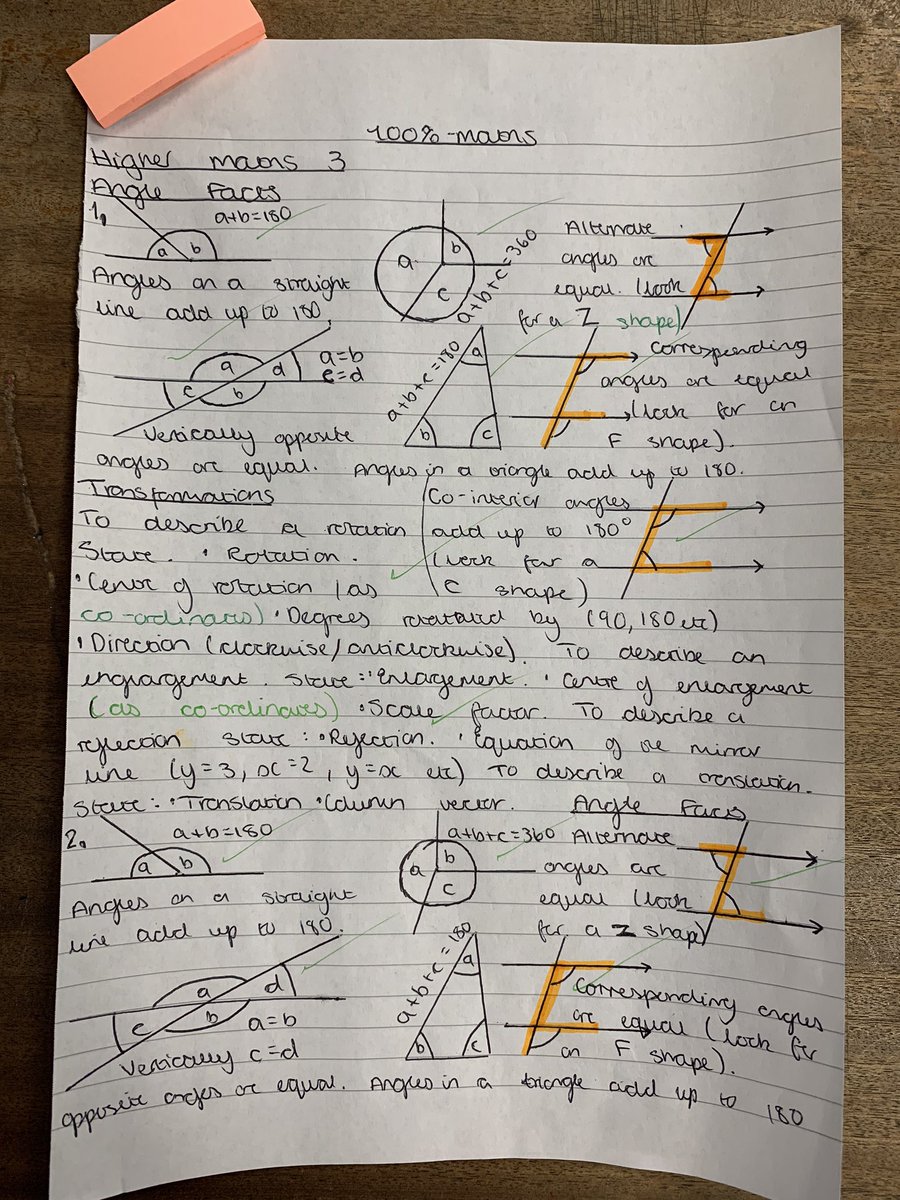 100%-maths
Higher maths 3
Angle Facts
1.
a+b=180
a b
Angles on a straight
line add up to 180.
a b c
a+b+c=360
Alternate
angles are
equal. (look
for a Z shape)
a d c b
a=b
c=d
Vertically opposite
angles are equal.
a+b+c=180
a b c
Angles in a triangle add up to 180.
Corresponding
angles are equal
(look for an
F shape).
Co-interior angles
add up to 180°
(look for a
C shape)
Transformations
To describe a rotation
State. • Rotation.
• Centre of rotation (as
co-ordinates) • Degrees rotated by (90, 180 etc)
• Direction (clockwise/anticlockwise). To describe an
englargement. State: • Enlargement. • Centre of enlargement
(as co-ordinates) • Scale factor. To describe a
reflection State: • Reflection. • Equation of the mirror
line (y=3, x=2, y=x etc) To describe a translation.
State: • Translation • Column vector.
Angle Facts
2.
a+b=180
a b
Angles on a straight
line add up to 180.
a+b+c=360
a b c
Alternate
angles are
equal (look
for a Z shape)
a d c b
a=b
c=d
Vertically
opposite angles are equal.
a+b+c=180
a b c
Angles in a triangle add up to 180
Corresponding angles
are equal (look for
an F shape).